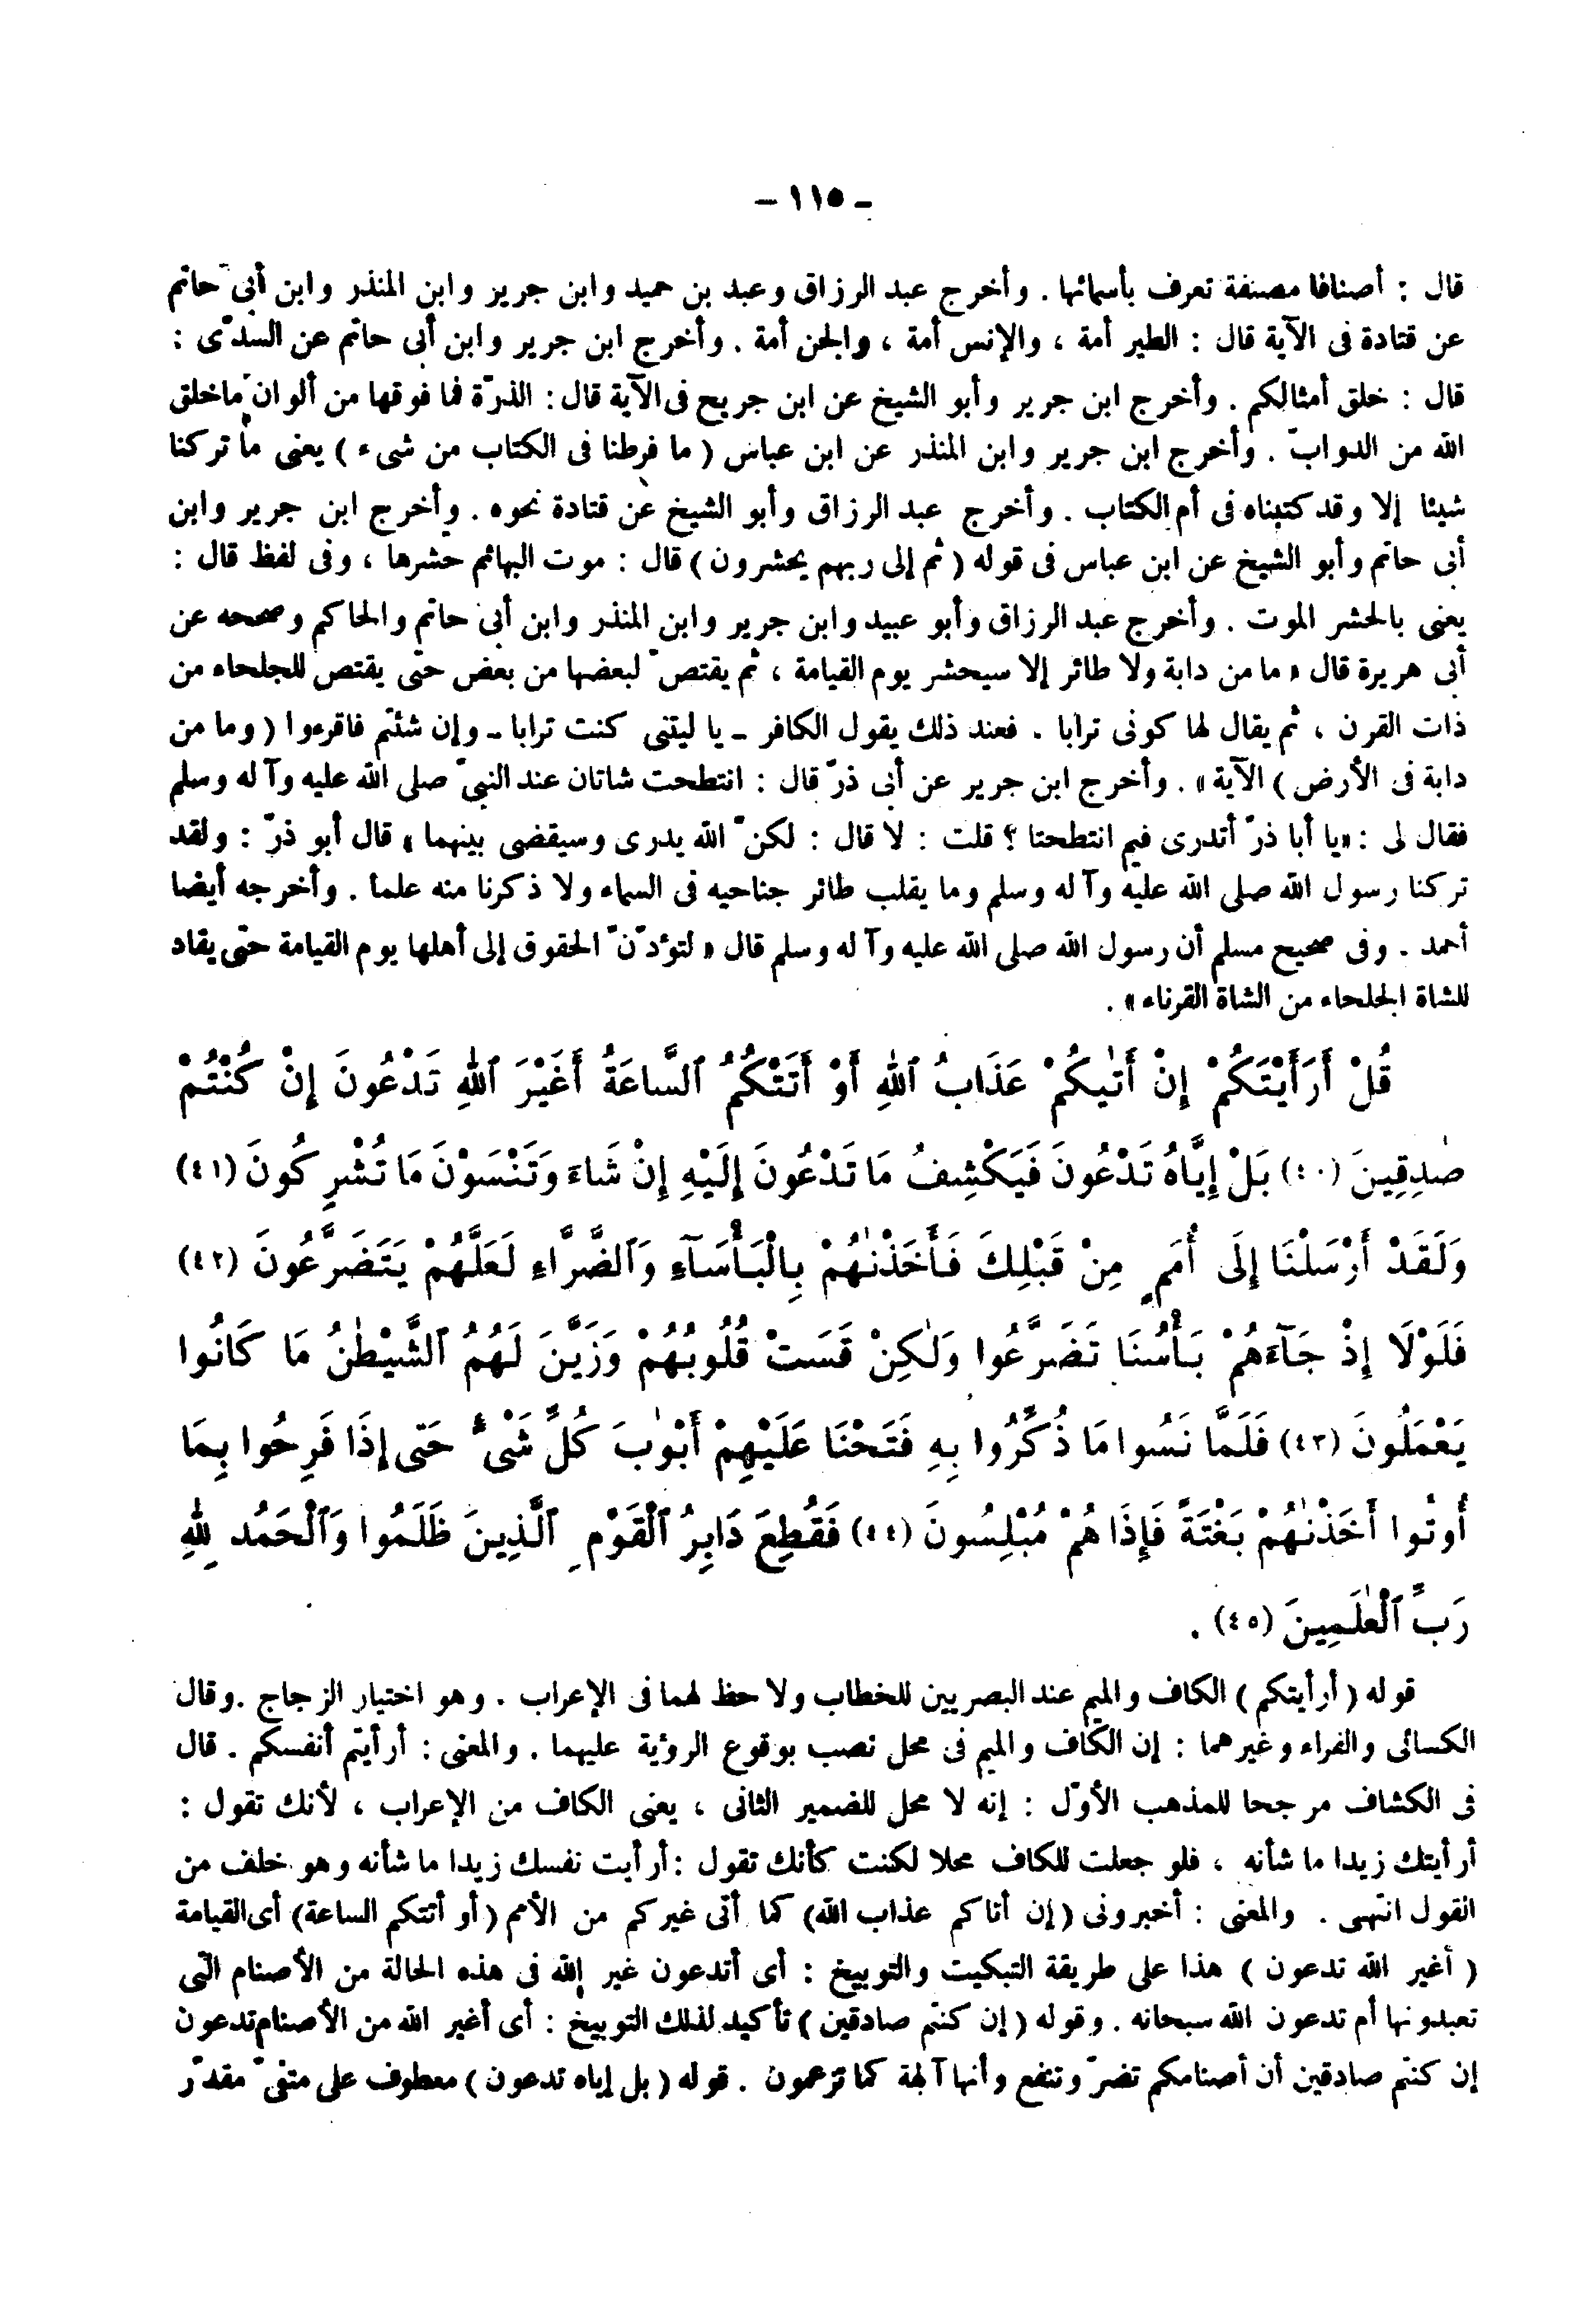 - ١١٥ -
قال : أصنافا مصنفة تعرف بأسمائها . وأخرج عبد الرزاق وعبد بن حميد وابن جرير وابن المنذر وابن أبي حاتم
عن قتادة فى الآية قال : الطير أمة ، والإنس أمة ، والجن أمة . وأخرج ابن جرير وابن أبى حاتم عن السدّى :
قال : خلق أمثالكم . وأخرج ابن جرير وأبو الشيخ عن ابن جريج فى الآية قال : الذرّة فما فوقها من ألوان ماخلق
الله من الدوابّ . وأخرج ابن جرير وابن المنذر عن ابن عباس ( ما فرطنا فى الكتاب من شىء ) يعنى ما تركنا
شيئا إلا وقد كتبناه فى أم الكتاب . وأخرج عبد الرزاق وأبو الشيخ عن قتادة نحوه . وأخرج ابن جرير وابن
أبى حاتم وأبو الشيخ عن ابن عباس فى قوله ( ثم إلى ربهم يحشرون ) قال : موت البهائم حشرها ، وفى لفظ قال :
يعنى بالحشر الموت . وأخرج عبد الرزاق وأبو عبيد وابن جرير وابن المنذر وابن أبى حاتم والحاكم وصححه عن
أبى هريرة قال « ما من دابة ولا طائر إلا سيحشر يوم القيامة ، ثم يقتصّ لبعضها من بعض حتى يقتص للجلحاء من
ذات القرن ، ثم يقال لها كونى ترابا . فعند ذلك يقول الكافر - يا ليتنى كنت ترابا - وإن شئتم فاقرءوا ( وما من
دابة فى الأرض ) الآية » . وأخرج ابن جرير عن أبى ذرّ قال : انتطحت شاتان عند النبىّ صلى الله عليه وآله وسلم
فقال لى : «يا أبا ذرّ أتدرى فيم انتطحتا ؟ قلت : لا قال : لكنّ الله يدرى وسيقضى بينهما » قال أبو ذرّ : ولقد
تركنا رسول الله صلى الله عليه وآله وسلم وما يقلب طائر جناحيه فى السماء ولا ذكرنا منه علما . وأخرجه أيضا
أحمد . وفى صحيح مسلم أن رسول الله صلى الله عليه وآله وسلم قال « لتؤدّنّ الحقوق إلى أهلها يوم القيامة حتى يقاد
للشاة الجلحاء من الشاة القرناء » .
قُلْ أَرَأَيْتَكُمْ إِنْ أَتٰيكُمْ عَذَابُ ٱللهِ أَوْ أَتَتْكُمُ ٱلسَّاعَةُ أَغَيْرَ ٱللهِ تَدْعُونَ إِنْ كُنْتُمْ
صٰدِقِينَ (٤٠) بَلْ إِيَّاهُ تَدْعُونَ فَيَكْشِفُ مَا تَدْعُونَ إِلَيْهِ إِنْ شَاءَ وَتَنْسَوْنَ مَا تُشْرِكُونَ (٤١)
وَلَقَدْ أَرْسَلْنَا إِلَى أُمَمٍ مِنْ قَبْلِكَ فَأَخَذْنٰهُمْ بِالْبَأْسَآءِ وَٱلضَّرَّاءِ لَعَلَّهُمْ يَتَضَرَّعُونَ (٤٢)
فَلَوْلَا إِذْ جَآءَهُمْ بَأْسُنَا تَضَرَّعُوا وَلٰكِنْ قَسَتْ قُلُوبُهُمْ وَزَيَّنَ لَهُمُ ٱلشَّيْطٰنُ مَا كَانُوا
يَعْمَلُونَ (٤٣) فَلَمَّا نَسُوا مَا ذُكِّرُوا بِهِ فَتَحْنَا عَلَيْهِمْ أَبْوٰبَ كُلِّ شَىْءٍ حَتى إِذَا فَرِحُوا بِمَا
أُوتُوا أَخَذْنٰهُمْ بَغْتَةً فَإِذَا هُمْ مُبْلِسُونَ (٤٤) فَقُطِعَ دَابِرُ ٱلْقَوْمِ ٱلَّذِينَ ظَلَمُوا وَٱلْحَمْدُ لِلّٰهِ
رَبِّ ٱلْعٰلَمِينَ (٤٥) .
قوله ( أرأيتكم ) الكاف والميم عند البصريين للخطاب ولا حظ لهما فى الإعراب . وهو اختيار الزجاج . وقال
الكسائى والفراء وغيرهما : إن الكاف والميم فى محل نصب بوقوع الرؤية عليهما . والمعنى : أرأيتم أنفسكم . قال
فى الكشاف مرجحا للمذهب الأوّل : إنه لا محل للضمير الثانى ، يعنى الكاف من الإعراب ، لأنك تقول :
أرأيتك زيدا ما شأنه ، فلو جعلت للكاف محلا لكنت كأنك تقول : أرأيت نفسك زيدا ما شأنه وهو خلف من
القول انتهى . والمعنى : أخبرونى ( إن أتاكم عذاب الله ) كما أتى غيركم من الأمم ( أو أتتكم الساعة ) أى القيامة
( أغير الله تدعون ) هذا على طريقة التبكيت والتوبيخ : أى أتدعون غير الله فى هذه الحالة من الأصنام التى
تعبدونها أم تدعون الله سبحانه . وقوله ( إن كنتم صادقين ) تأكيد لذلك التوبيخ : أى أغير الله من الأصنام تدعون
إن كنتم صادقين أن أصنامكم تضرّ وتنفع وأنها آلهة كما تزعمون . قوله ( بل إياه تدعون ) معطوف على منفىّ مقدّر